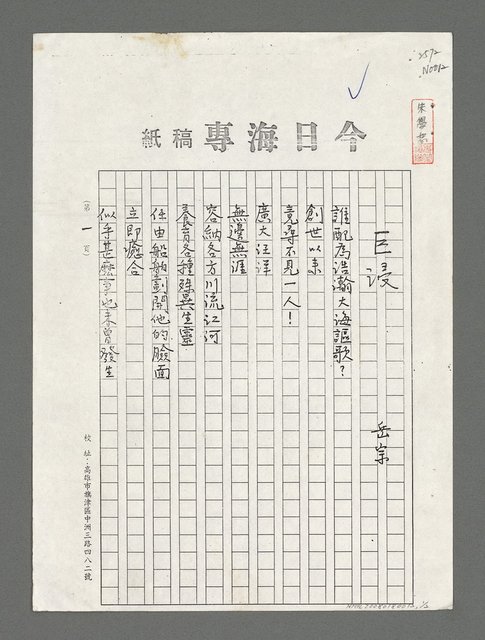 2572
N0012
朱學恕
今日海專稿紙
巨浸
岳宗
誰配為浩瀚大海謳歌？
創世以來
竟尋不見一人！
廣大汪洋
無邊無涯
容納各方川流江河
養育各種殊異生靈
任由船舶割開他的臉面
立即癒合
似乎甚麼事也未曾發生
（第一頁）
校址：高雄市旗津區中洲三路四八二號